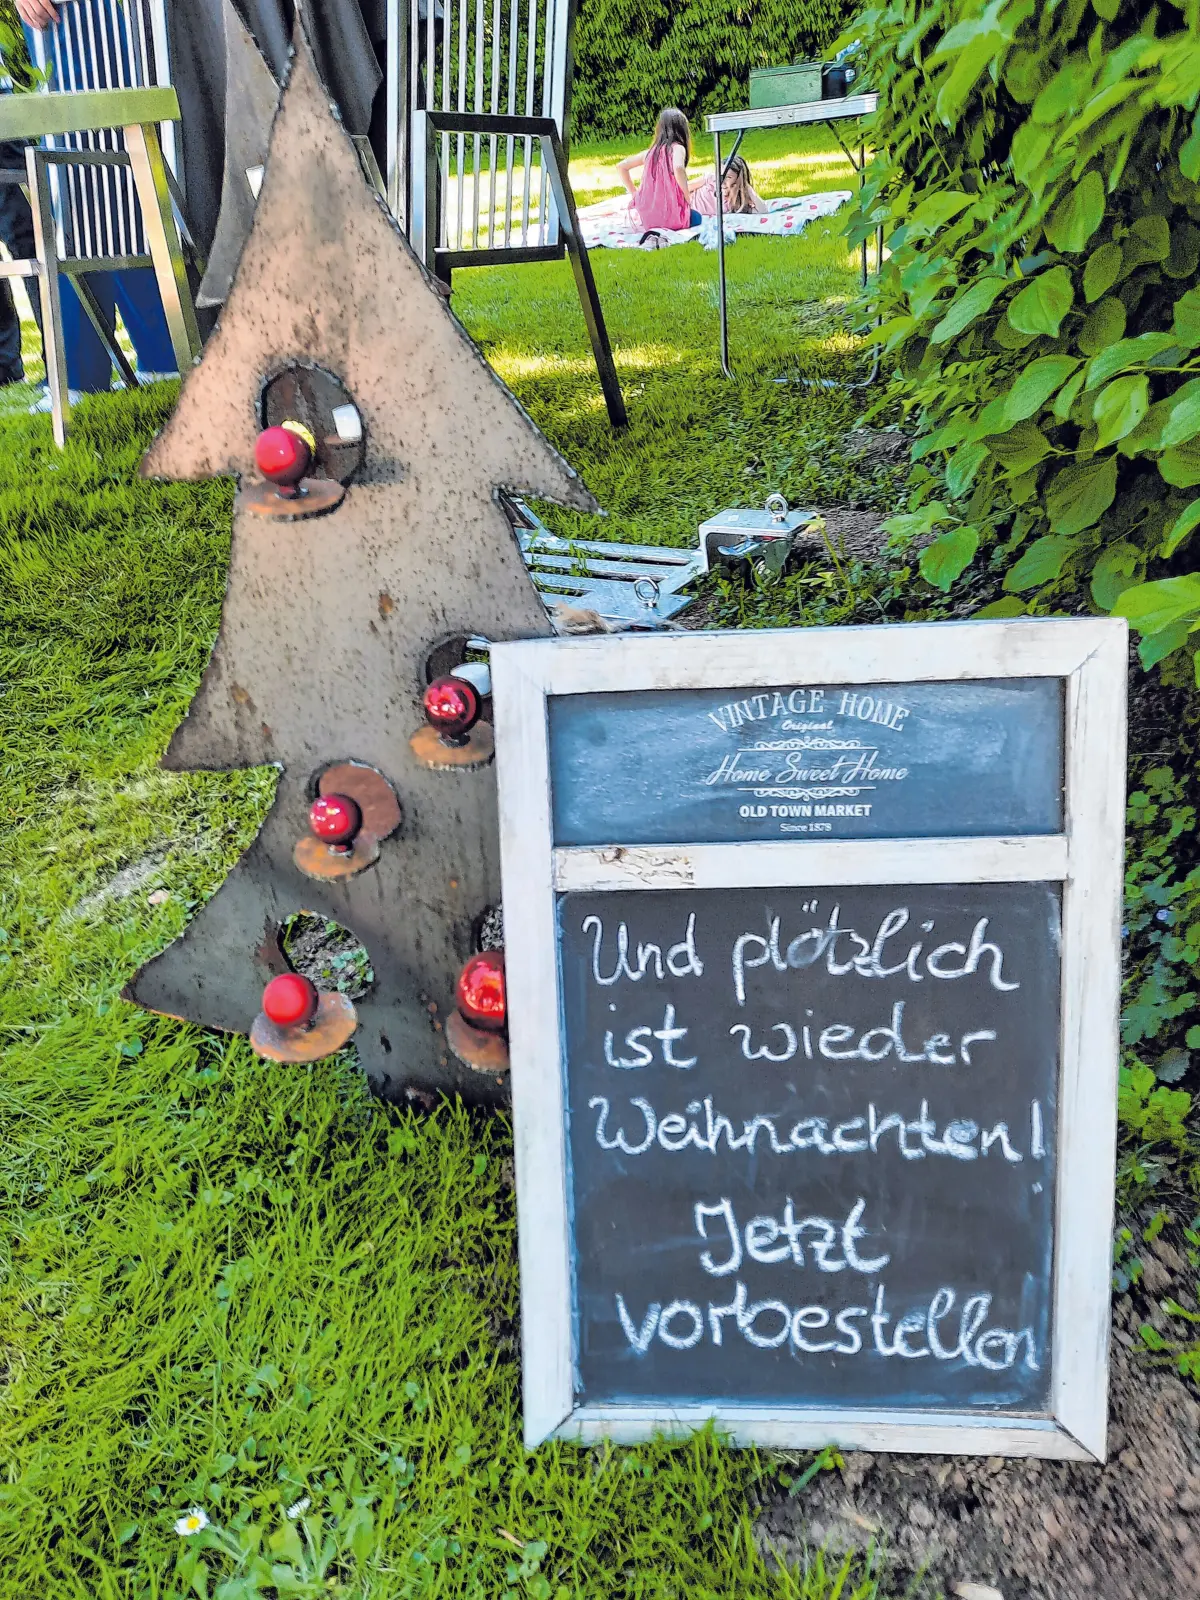 VINTAGE HOME
Original
Home Sweet Home
OLD TOWN MARKET
Since 1878
Und plötzlich
ist wieder
Weihnachten!
Jetzt
vorbestellen